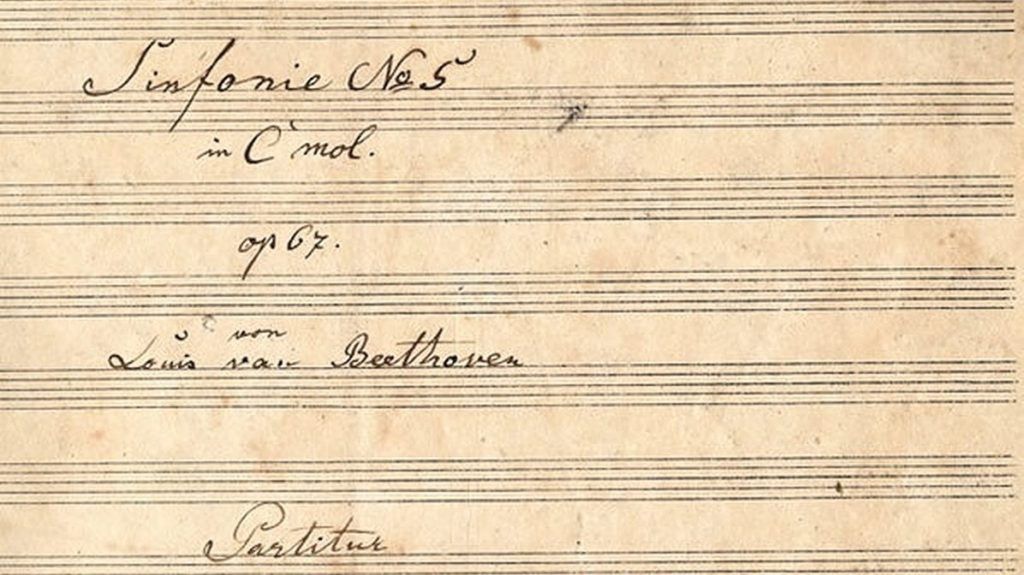 Sinfonie No 5
in C mol.
op 67.
von
Louis van Beethoven
Partitur